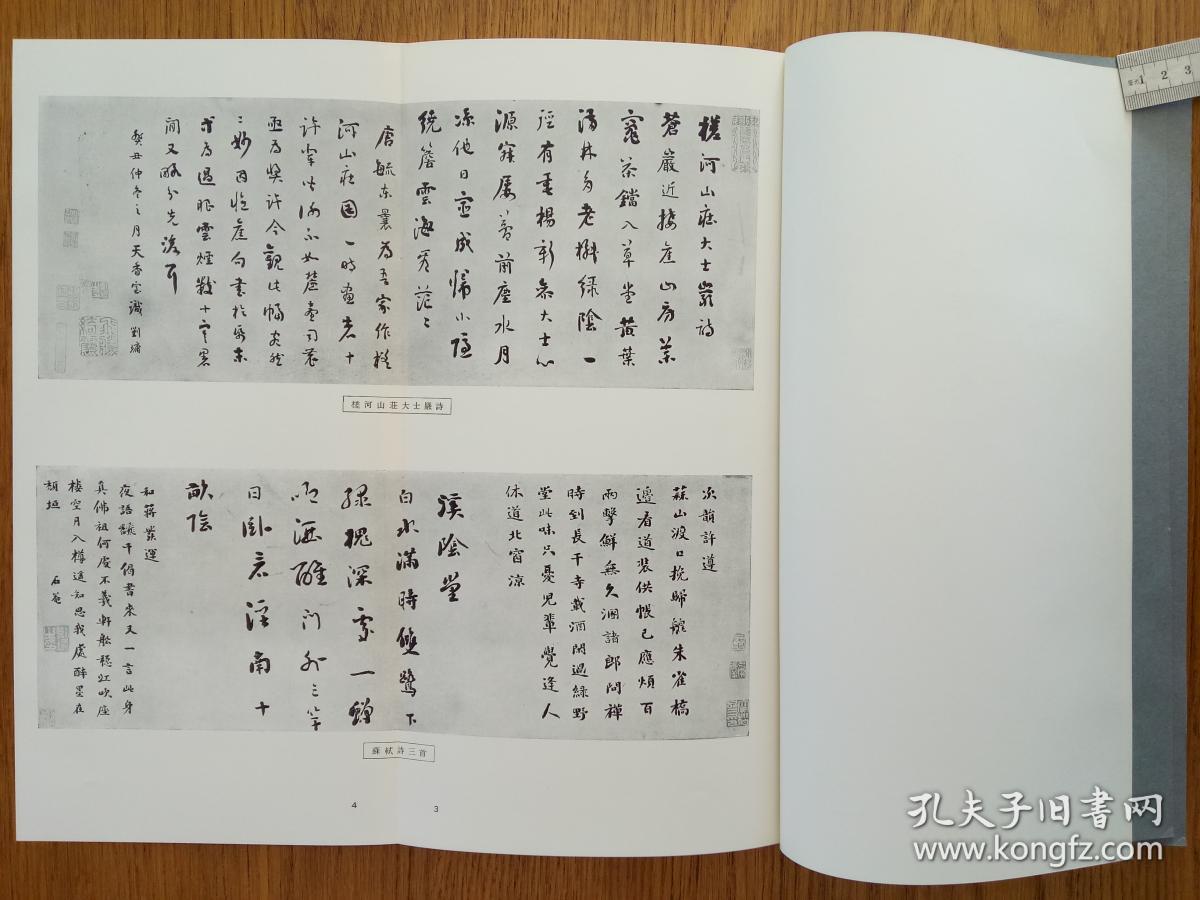 槎河山莊大士巖詩
蒼巖近接崖山房葉
窕茶鐺入草堂黃葉
清林多老槲綠陰一
徑有垂楊新參大士心
源寂屢夢前塵水月
涼他日臺成歸小隱
繞簷雲海看茫々
唐毓東曩為吾家作槎
河山莊圖一時畫者十
許輩皆謝不如
亟為獎許今觀此幅
々妙因憶
過眼雲煙數十
間又略分先後耳
癸丑仲冬之月天香室識劉墉
槎河山莊大士巖詩
次韻許遵
蒜山渡口挽歸艎朱雀橋
邊看道裝供帳已應煩百
兩擊鮮無久溷諸郎問禪
時到長干寺載酒閑過綠野
堂此味只憂兒輩覺逢人
休道北窗涼
溪陰堂
白水滿時雙鷺下
綠槐深處一蟬
吟酒醒門外三竿
日臥看溪南十
畝陰
和蔣發運
夜語翻千偈書來又一言此身
真佛祖何處不羲軒船穩江吹座
樓空月入樽遙知思我處醉墨在
頹垣
石菴
蘇軾詩三首
4
3
1 2 3
孔夫子旧书网
www.kongfz.com